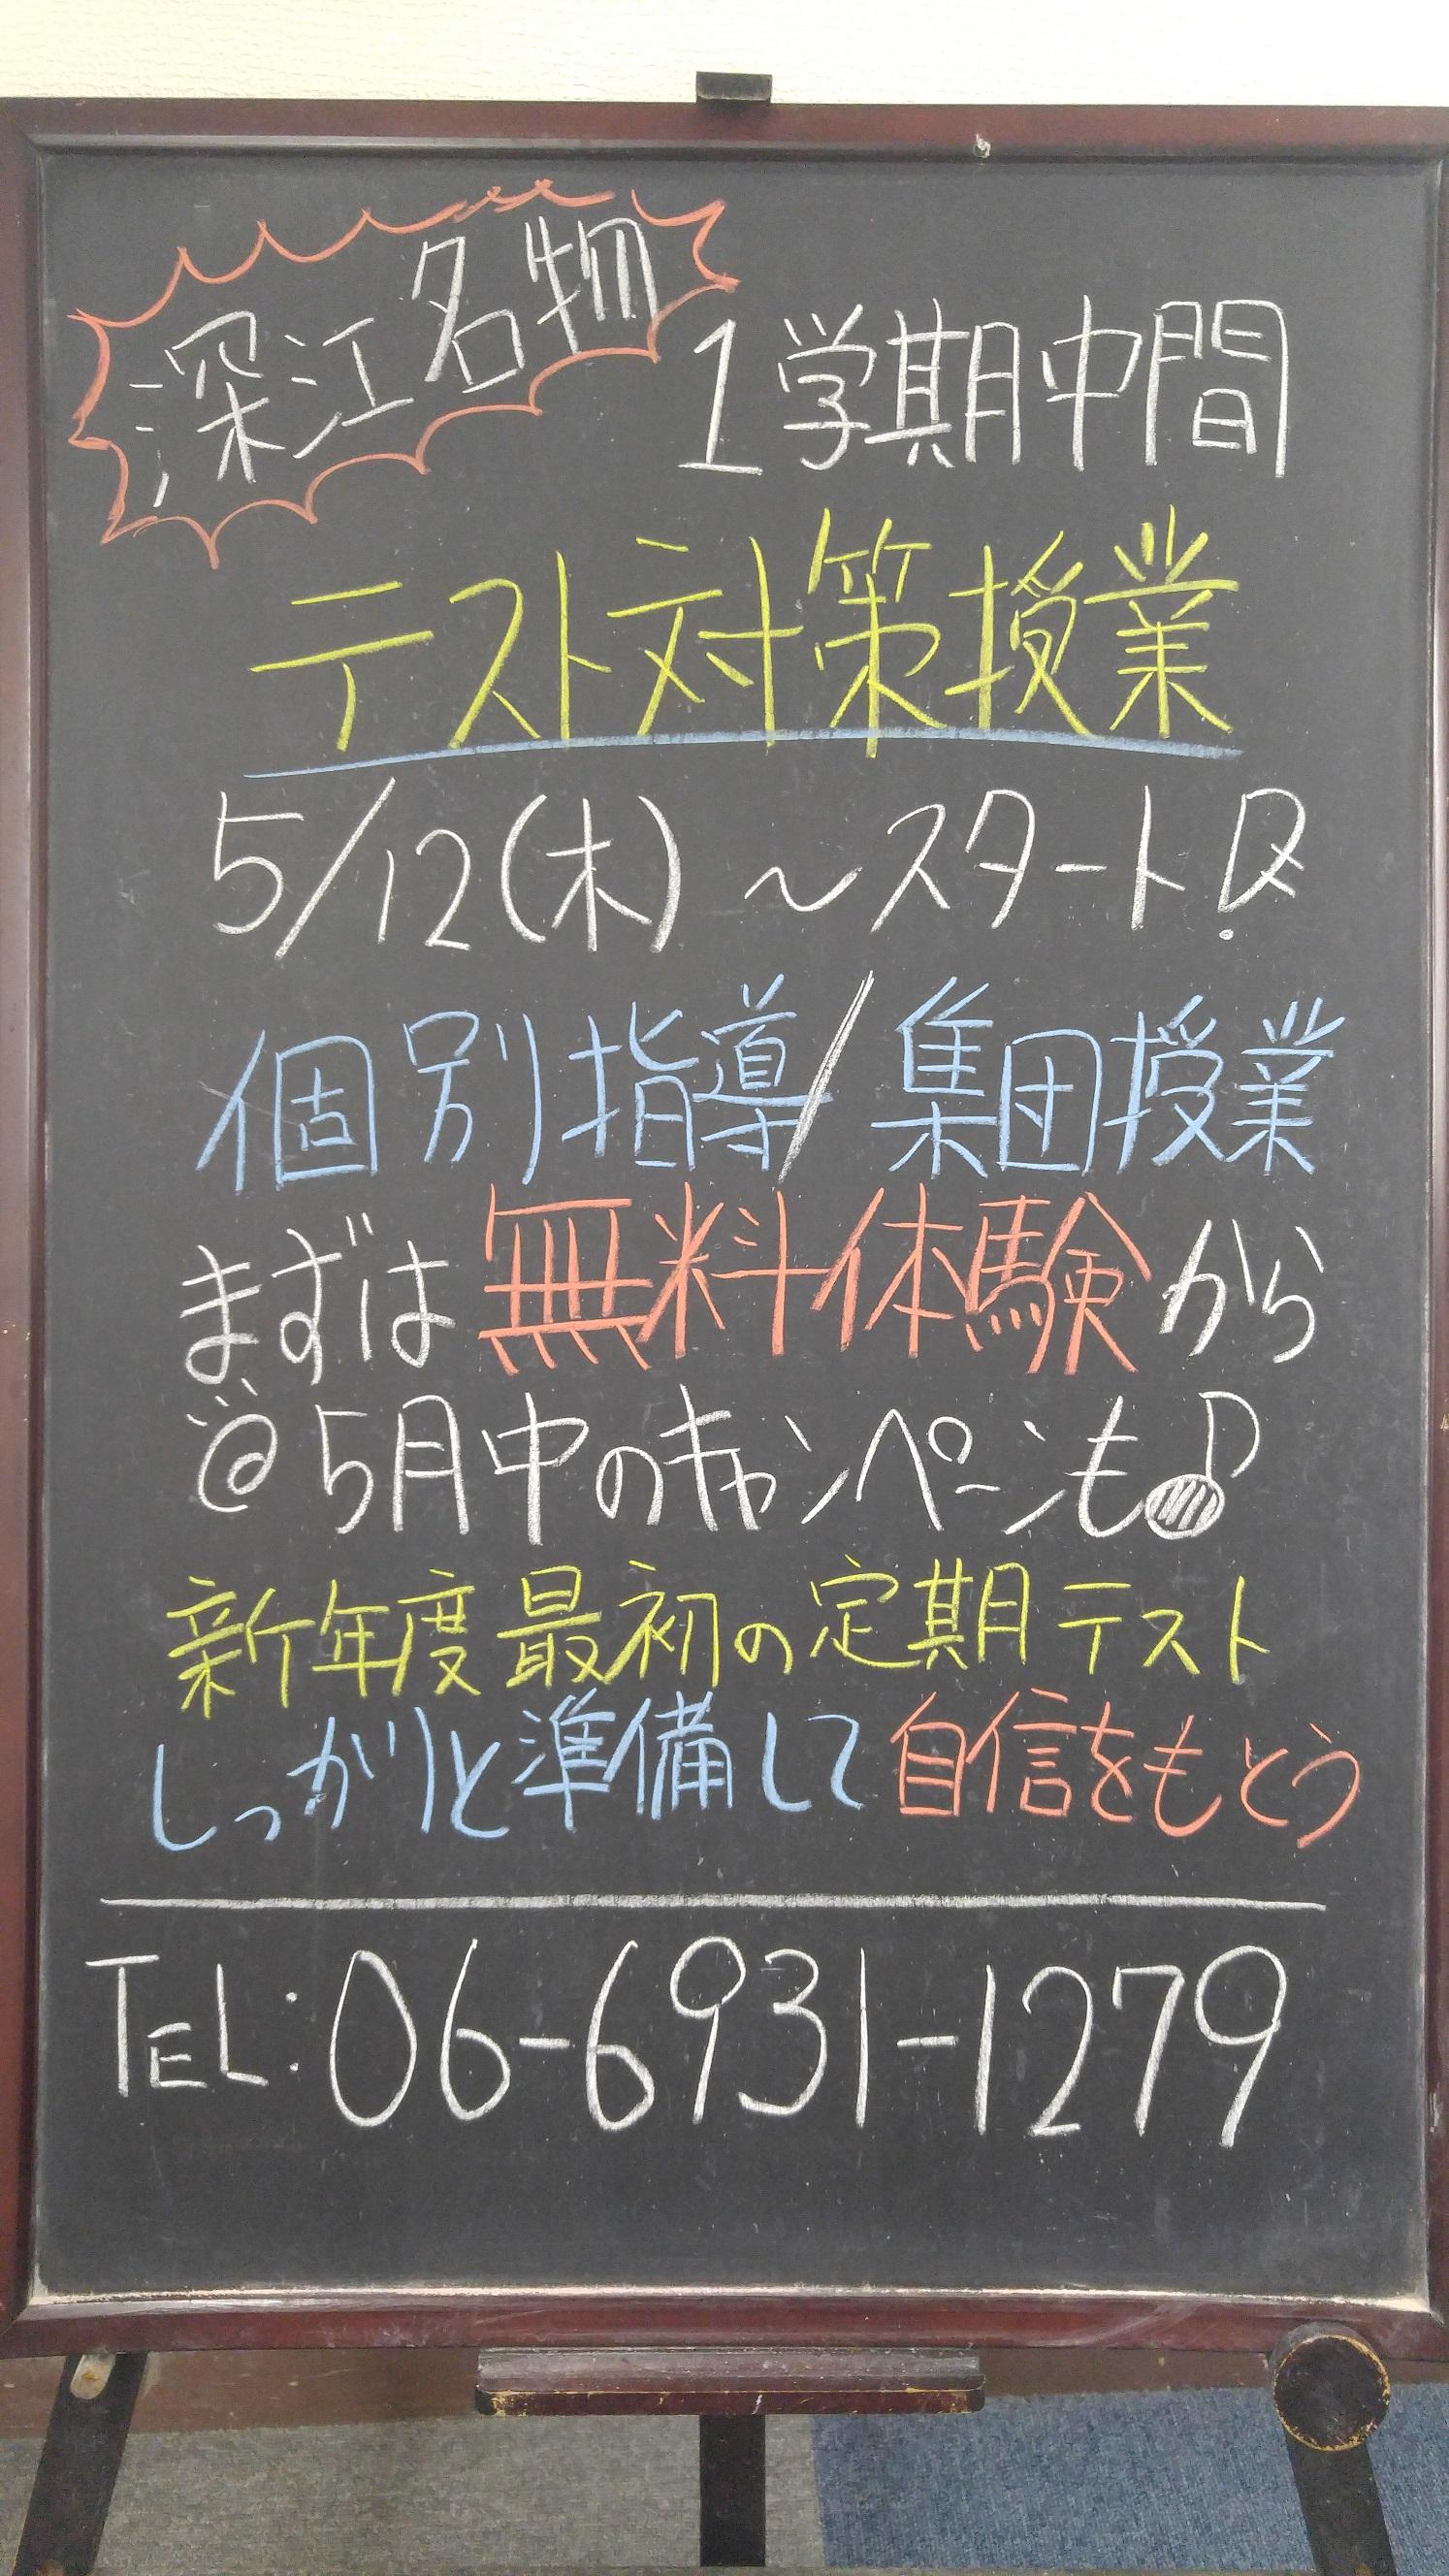 深江名物
1学期中間
テスト対策授業
5/12(木)～スタート!
個別指導/集団授業
まずは無料体験から
@5月中のキャンペーンも♪
新年度最初の定期テスト
しっかりと準備して自信をもとう
TEL:06-6931-1279